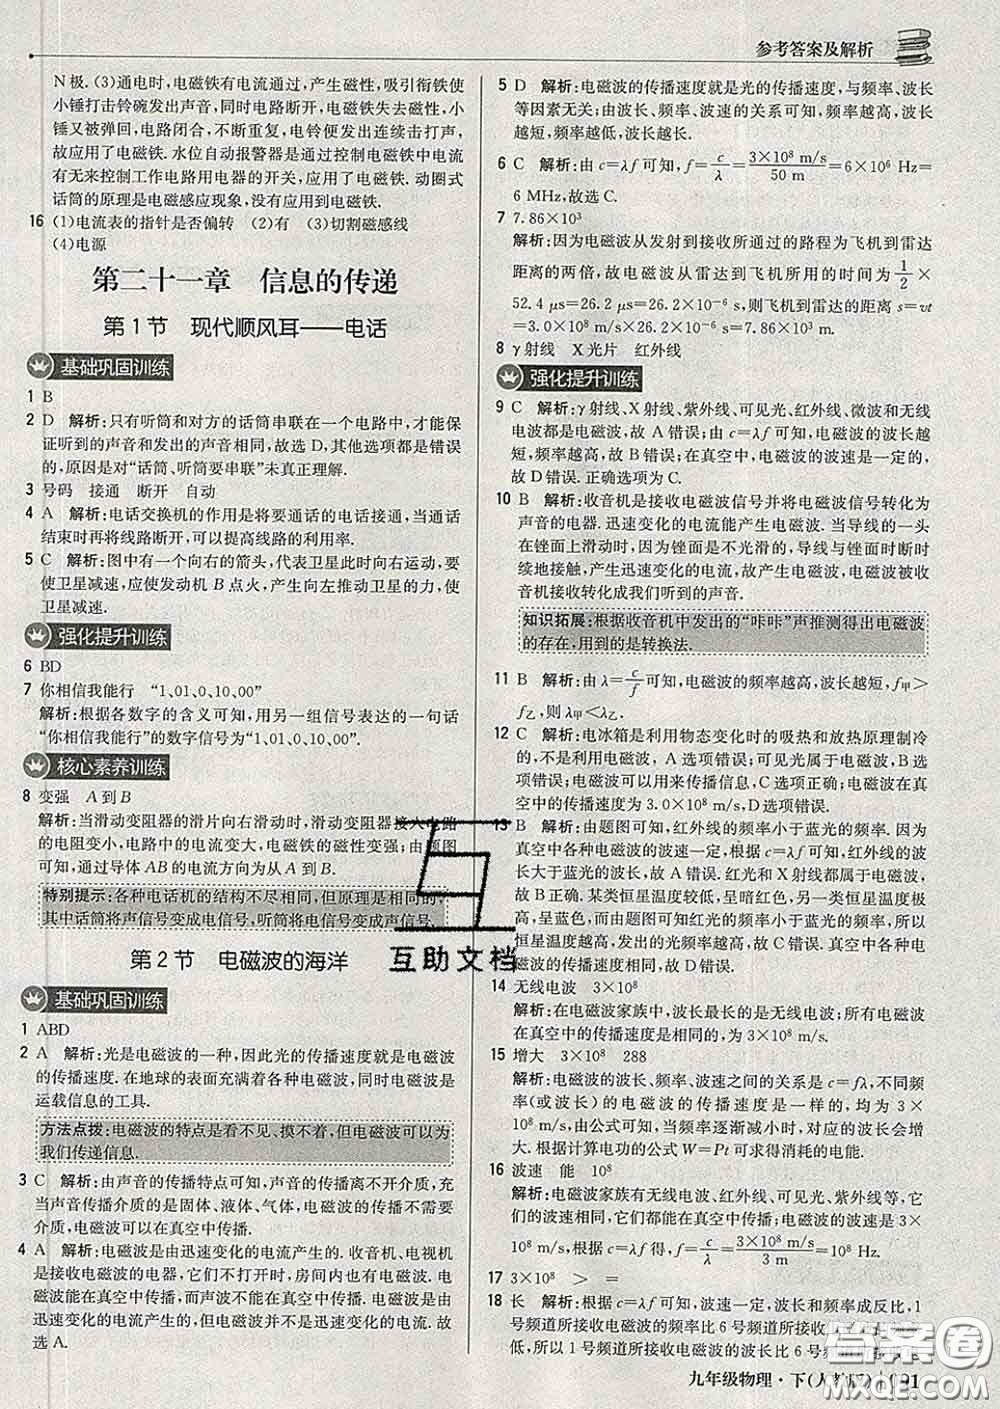 参考答案及解析
N极.(3)通电时,电磁铁有电流通过,产生磁性,吸引衔铁使
小锤打击铃碗发出声音,同时电路断开,电磁铁失去磁性,小
锤又被弹回,电路闭合,不断重复,电铃便发出连续击打声,
故应用了电磁铁.水位自动报警器是通过控制电磁铁中电流
有无来控制工作电路用电器的开关,应用了电磁铁.动圈式
话筒的原理是电磁感应现象,没有应用到电磁铁.
16 (1)电流表的指针是否偏转 (2)有 (3)切割磁感线
(4)电源
第二十一章 信息的传递
第1节 现代顺风耳——电话
基础巩固训练
1 B
2 D 解析:只有听筒和对方的话筒串联在一个电路中,才能保
证听到的声音和发出的声音相同,故选D,其他选项都是错误
的,原因是对“话筒、听筒要串联”未真正理解.
3 号码 接通 断开 自动
4 A 解析:电话交换机的作用是将要通话的电话接通,当通话
结束时再将线路断开,可以提高线路的利用率.
5 C 解析:图中有一个向右的箭头,代表卫星此时向右运动,要
使卫星减速,应使发动机B点火,产生向左推动卫星的力,使
卫星减速.
强化提升训练
6 BD
7 你相信我能行 “1,01,0,10,00”
解析:根据各数字的含义可知,用另一组信号表达的一句话
“你相信我能行”的数字信号为“1,01,0,10,00”.
核心素养训练
8 变强 A到B
解析:当滑动变阻器的滑片向右滑动时,滑动变阻器接入电路
的电阻变小,电路中的电流变大,电磁铁的磁性变强;由题图
可知,通过导体AB的电流方向为从A到B.
特别提示:各种电话机的结构不尽相同,但原理是相同的,
其中话筒将声信号变成电信号,听筒将电信号变成声信号.
第2节 电磁波的海洋
基础巩固训练
1 ABD
2 A 解析:光是电磁波的一种,因此光的传播速度就是电磁波
的传播速度.在地球的表面充满着各种电磁波,同时电磁波是
运载信息的工具.
方法点拨:电磁波的特点是看不见、摸不着,但电磁波可以为
我们传递信息.
3 C 解析:由声音的传播特点可知,声音的传播离不开介质,充
当声音传播介质的是固体、液体、气体,电磁波的传播不需要
介质,电磁波可以在真空中传播.
4 A 解析:电磁波是由迅速变化的电流产生的.收音机、电视机
是接收电磁波的电器,它们不打开时,房间内也有电磁波.电
磁波能在真空中传播,而声波不能在真空中传播.电磁波是由
变化的电流产生的,但电磁波并不是迅速变化的电流.故
选A.
5 D 解析:电磁波的传播速度就是光的传播速度,与频率、波长
等因素无关;由波长、频率、波速的关系可知,频率越高,波长
越短,频率越低,波长越长.
6 C 解析:由c=λf可知,f=c/λ=3×10⁸ m/s/50 m=6×10⁶ Hz=
6 MHz,故选C.
7 7.86×10³
解析:因为电磁波从发射到接收所通过的路程为飞机到雷达
距离的两倍,故电磁波从雷达到飞机所用的时间为1/2×
52.4 μs=26.2 μs=26.2×10⁻⁶ s,则飞机到雷达的距离s=vt
=3×10⁸ m/s×26.2×10⁻⁶ s=7.86×10³ m.
8 γ射线 X光片 红外线
强化提升训练
9 C 解析:γ射线、X射线、紫外线、可见光、红外线、微波和无线
电波都是电磁波,故A错误;由c=λf可知,电磁波的波长越
短,频率越高,故B错误;在真空中,电磁波的波速是一定的,
故D错误.正确选项为C.
10 B 解析:收音机是接收电磁波信号并将电磁波信号转化为
声音的电器.迅速变化的电流能产生电磁波.当导线的一头
在锉面上滑动时,因为锉面是不光滑的,导线与锉面时断时
续地接触,产生迅速变化的电流,故产生电磁波,电磁波被收
音机接收转化成我们听到的声音.
知识拓展:根据收音机中发出的“咔咔”声推测得出电磁波
的存在,用到的是转换法.
11 B 解析:由λ=c/f可知,电磁波的频率越高,波长越短,f甲>
f乙,则λ甲<λ乙.
12 C 解析:电冰箱是利用物态变化时的吸热和放热原理制冷
的,不是利用电磁波,A选项错误;可见光属于电磁波,B选
项错误;电磁波可以用来传播信息,C选项正确;电磁波在真
空中的传播速度为3.0×10⁸ m/s,D选项错误.
13 B 解析:由题图可知,红外线的频率小于蓝光的频率.因为
真空中各种电磁波的传播速度一样大,根据频率、波长、波速
的关系可知,红外线的波长大于蓝光的波长,故A错误,B正
确.红光和X射线都是电磁波,在真空中的传播速度一样大,
故C错误.某类恒星呈现暗红色,另一类恒星呈现明亮的蓝
色,由题图可知蓝光的频率大于红光的频率,所以呈蓝色的
恒星温度高,发出的光频率较大;呈暗红色的恒星温度较低,
发出的光频率较小,故D错误.
14 无线电波 3×10⁸
解析:在电磁波家族中,波长最长的是无线电波;所有电磁波
在真空中的传播速度是相同的,为3×10⁸ m/s.
15 增大 3×10⁸ 288
解析:电磁波的波长、频率、波速之间的关系是c=fλ,不同频
率(或波长)的电磁波的传播速度是一样的,均为3×
10⁸ m/s,由公式可知,当频率逐渐减小时,对应的波长会增
大.根据计算电功的公式W=Pt可求得消耗的电能.
16 波速 能 10⁸
解析:电磁波家族有无线电波、红外线、可见光、紫外线等,
它们都能在真空中传播,且在真空中的波速均为3×
10⁸ m/s,根据c=λf得,f=c/λ=3×10⁸ m/s/3 m=10⁸ Hz.
17 3×10⁸ > =
18 长 解析:根据c=λf可知,波速一定,波长和频率成反比,1
号频道所接收电磁波的频率比6号频道所接收电磁波的频率
低,所以1号频道所接收电磁波的波长比6号频道
九年级物理·下(人教版) 91
互助文档
答案圈
MXQE.COM